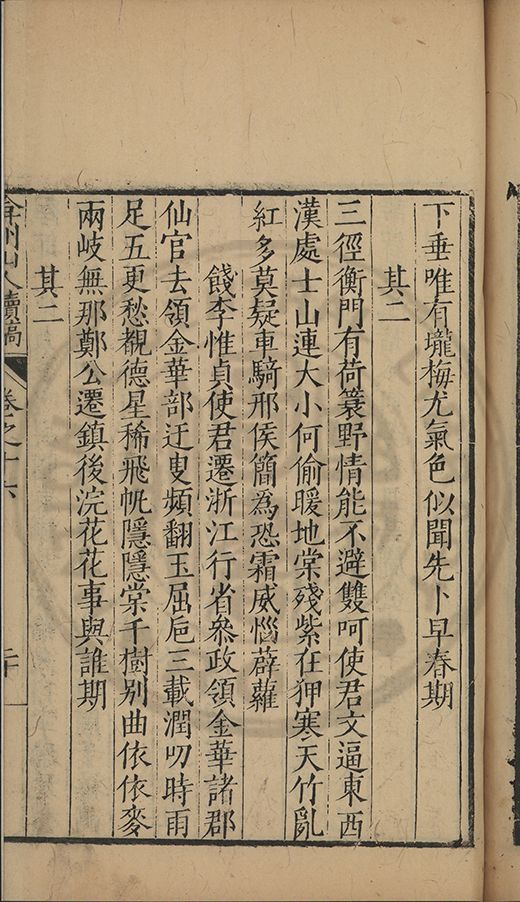 下垂唯有壠梅尤氣色似聞先卜早春期
其二
三徑衡門有荷蓑野情能不避雙呵使君文逼東西
漢處士山連大小何偷暖地棠殘紫在狎寒天竹亂
紅多莫疑車騎邢侯簡為恐霜威惱薜蘿
餞李惟貞使君遷浙江行省叅政領金華諸郡
仙官去領金華部迂叟頻翻玉屈巵三載潤叨時雨
足五更愁覩德星稀飛帆隱隱棠千樹别曲依依麥
兩岐無那鄭公遷鎮後浣花花事與誰期
其二
弇州山人續稿 卷之十六 二十